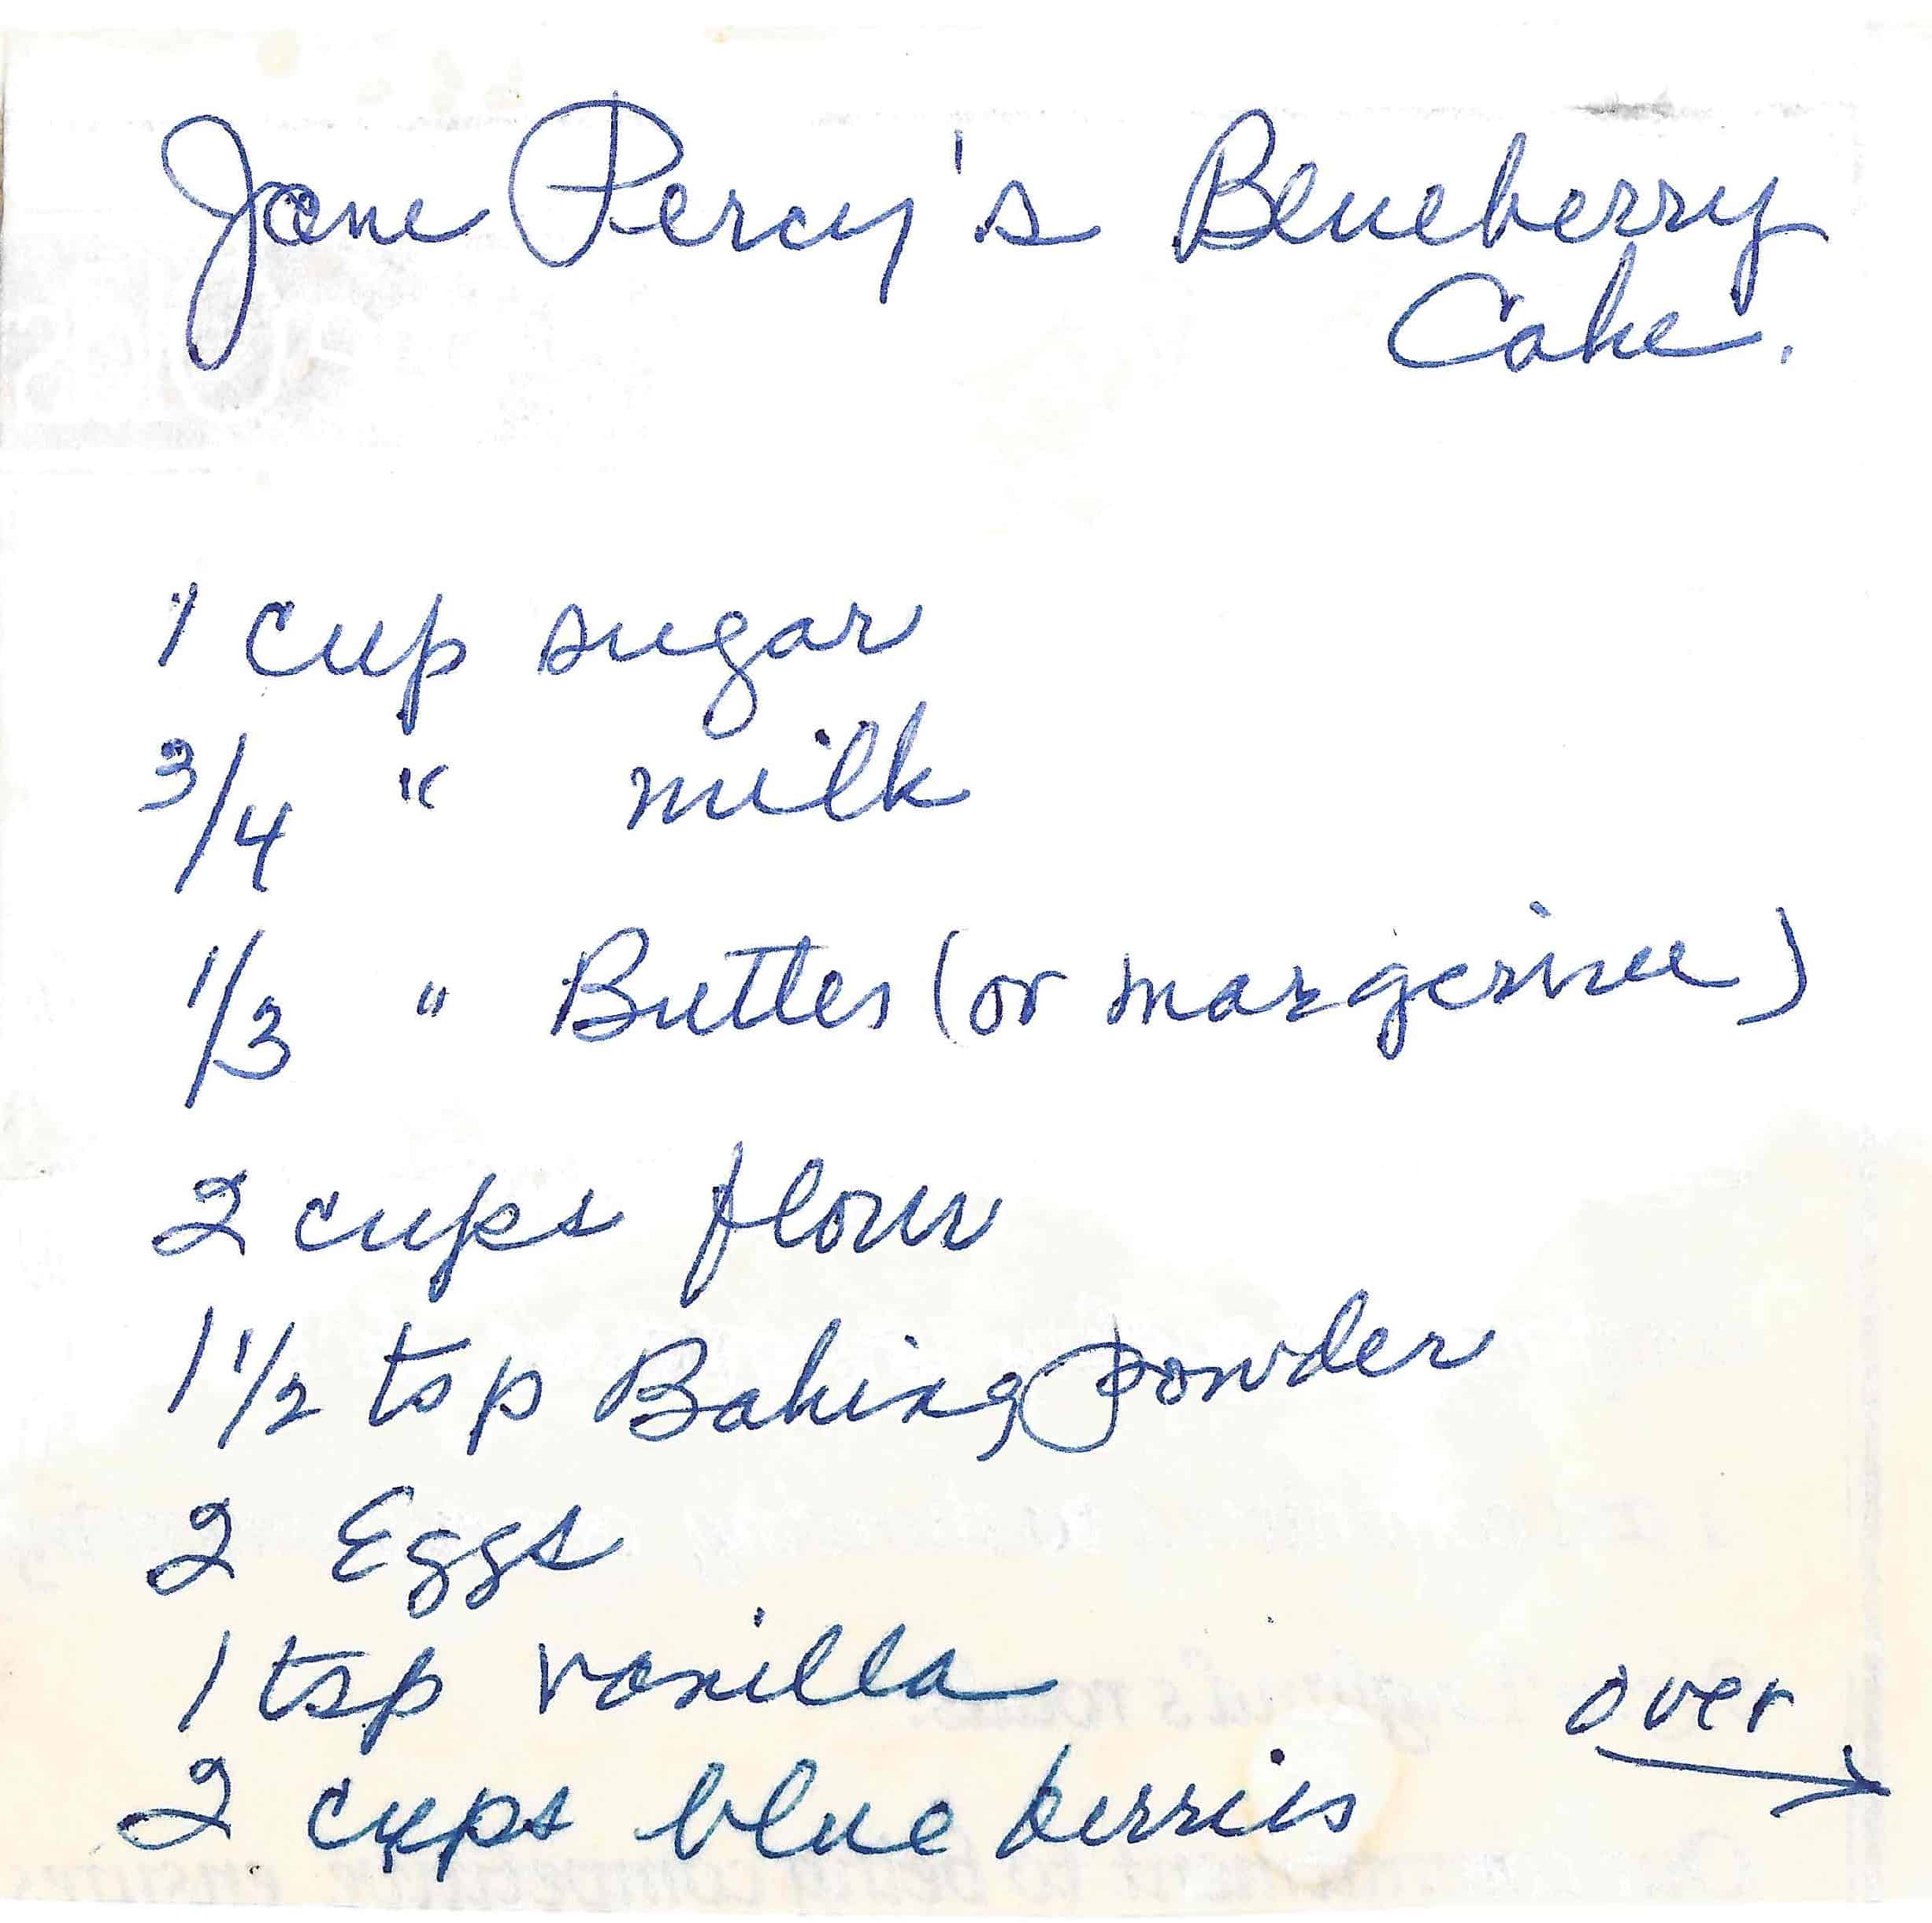 Jane Percy's Blueberry
Cake.
1 cup sugar
3/4 " milk
1/3 " Butter (or margerine)
2 cups flour
1 1/2 tsp Baking Powder
2 Eggs
1 tsp vanilla
over
2 cups blue berries